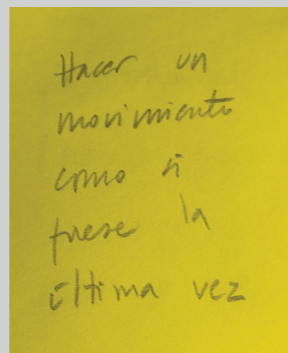 Hacer un
movimiento
como si
fuese la
última vez